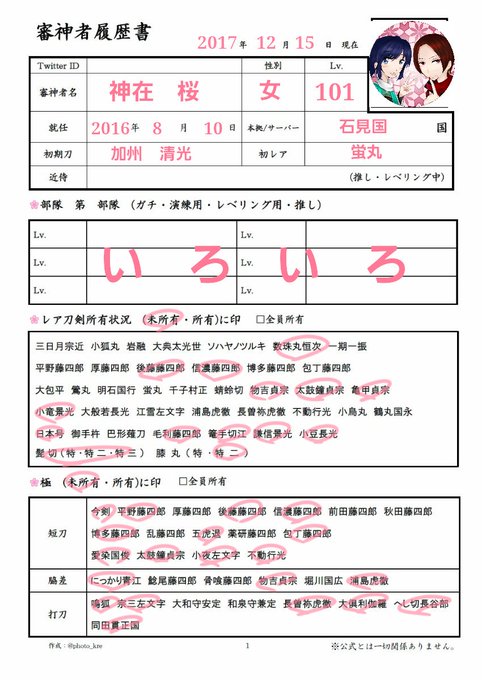 審神者履歴書
2017年 12月 15日 現在
Twitter ID 性別 Lv.
審神者名 神在 桜 女 101
就任 2016年 8月 10日 本拠/サーバー 石見国 国
初期刀 加州 清光 初レア 蛍丸
近侍 (推し・レベリング中)
🌸部隊 第 部隊 (ガチ・演練用・レベリング用・推し)
Lv. Lv.
Lv. いろ Lv. いろ
Lv. Lv.
🌸レア刀剣所有状況 (未所有・所有)に印 □全員所有
三日月宗近 小狐丸 岩融 大典太光世 ソハヤノツルキ 数珠丸恒次 一期一振
平野藤四郎 厚藤四郎 後藤藤四郎 信濃藤四郎 博多藤四郎 包丁藤四郎
大包平 鶯丸 明石国行 蛍丸 千子村正 蜻蛉切 物吉貞宗 太鼓鐘貞宗 亀甲貞宗
小竜景光 大般若長光 江雪左文字 浦島虎徹 長曽祢虎徹 不動行光 小烏丸 鶴丸国永
日本号 御手杵 巴形薙刀 毛利藤四郎 篭手切江 謙信景光 小豆長光
髭切(特・特二・特三) 膝丸(特・特二)
🌸極 (未所有・所有)に印 □全員所有
短刀
今剣 平野藤四郎 厚藤四郎 後藤藤四郎 信濃藤四郎 前田藤四郎 秋田藤四郎
博多藤四郎 乱藤四郎 五虎退 薬研藤四郎 包丁藤四郎
愛染国俊 太鼓鐘貞宗 小夜左文字 不動行光
脇差 にっかり青江 鯰尾藤四郎 骨喰藤四郎 物吉貞宗 堀川国広 浦島虎徹
打刀 鳴狐 宗三左文字 大和守安定 和泉守兼定 長曽祢虎徹 大倶利伽羅 へし切長谷部
同田貫正国
作成：@photo_kre 1 ※公式とは一切関係ありません。